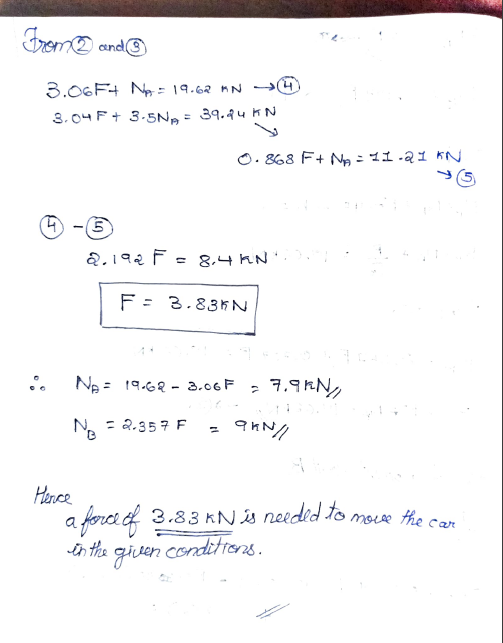 From ② and ③
3.06F + N_A = 19.62 KN → ④
3.04F + 3.5N_A = 39.24 KN
0.868 F + N_A = 11.21 KN
→ ⑤
④ - ⑤
2.192 F = 8.4 KN
F = 3.83KN
∴ N_A = 19.62 - 3.06F = 7.9KN//
N_B = 2.357 F = 9KN//
Hence
a force of 3.83 KN is needed to move the car
in the given conditions.